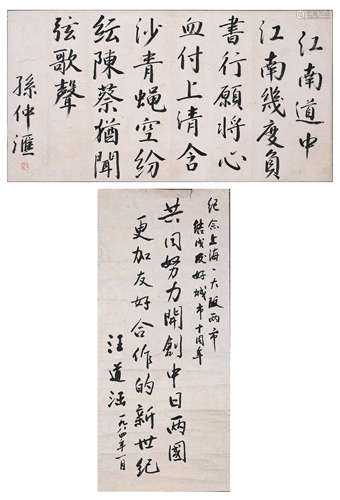 江南道中
江南幾度負
書行願將心
血付上清含
沙青蝇空紛
紜陳蔡猶聞
弦歌聲
孫仲滙
纪念上海·大阪两市
结成友好城市十周年
共同努力開創中日两國
更加友好合作的新世纪
汪道涵
一九八四年一月